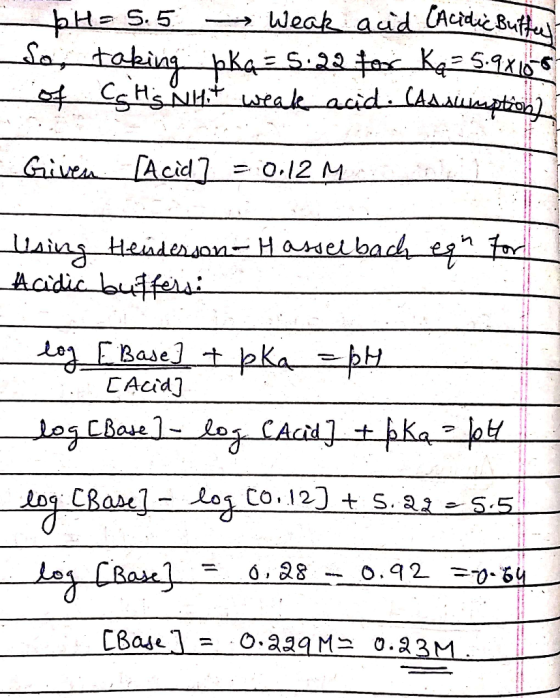 pH = 5.5 → Weak acid (Acidic Buffer)
So, taking pKa = 5.22 for Ka = 5.9×10⁻⁶
of C5H5NH+ weak acid. (Assumption)
Given [Acid] = 0.12 M
Using Henderson-Hasselbach eqn for
Acidic buffers:
log [Base]/[Acid] + pKa = pH
log [Base] - log [Acid] + pKa = pH
log [Base] - log [0.12] + 5.22 = 5.5
log [Base] = 0.28 - 0.92 = -0.64
[Base] = 0.229M = 0.23M.